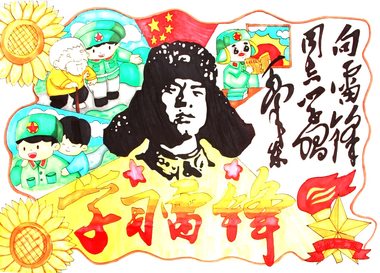 向雷锋
同志学习
毛泽东
学习雷锋